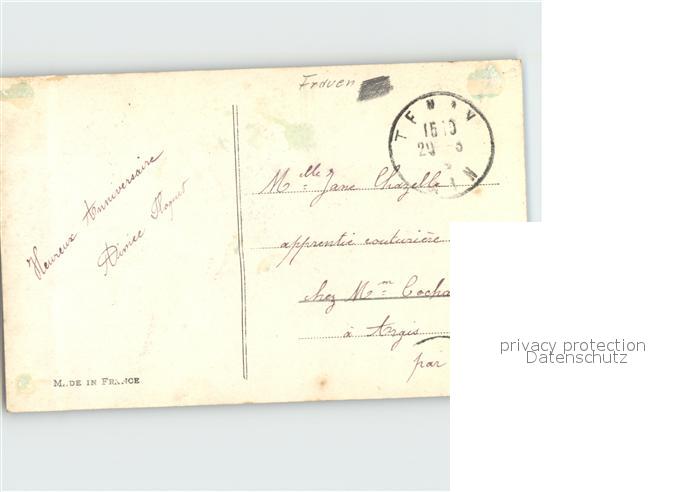 Frauen
TENAY
15 10
20 - 3
AIN
Heureux Anniversaire
Aimée
Mlle Jane Chazelle
apprentie couturière
chez Mm Cocha
à Argis
par
MADE IN FRANCE
privacy protection
Datenschutz